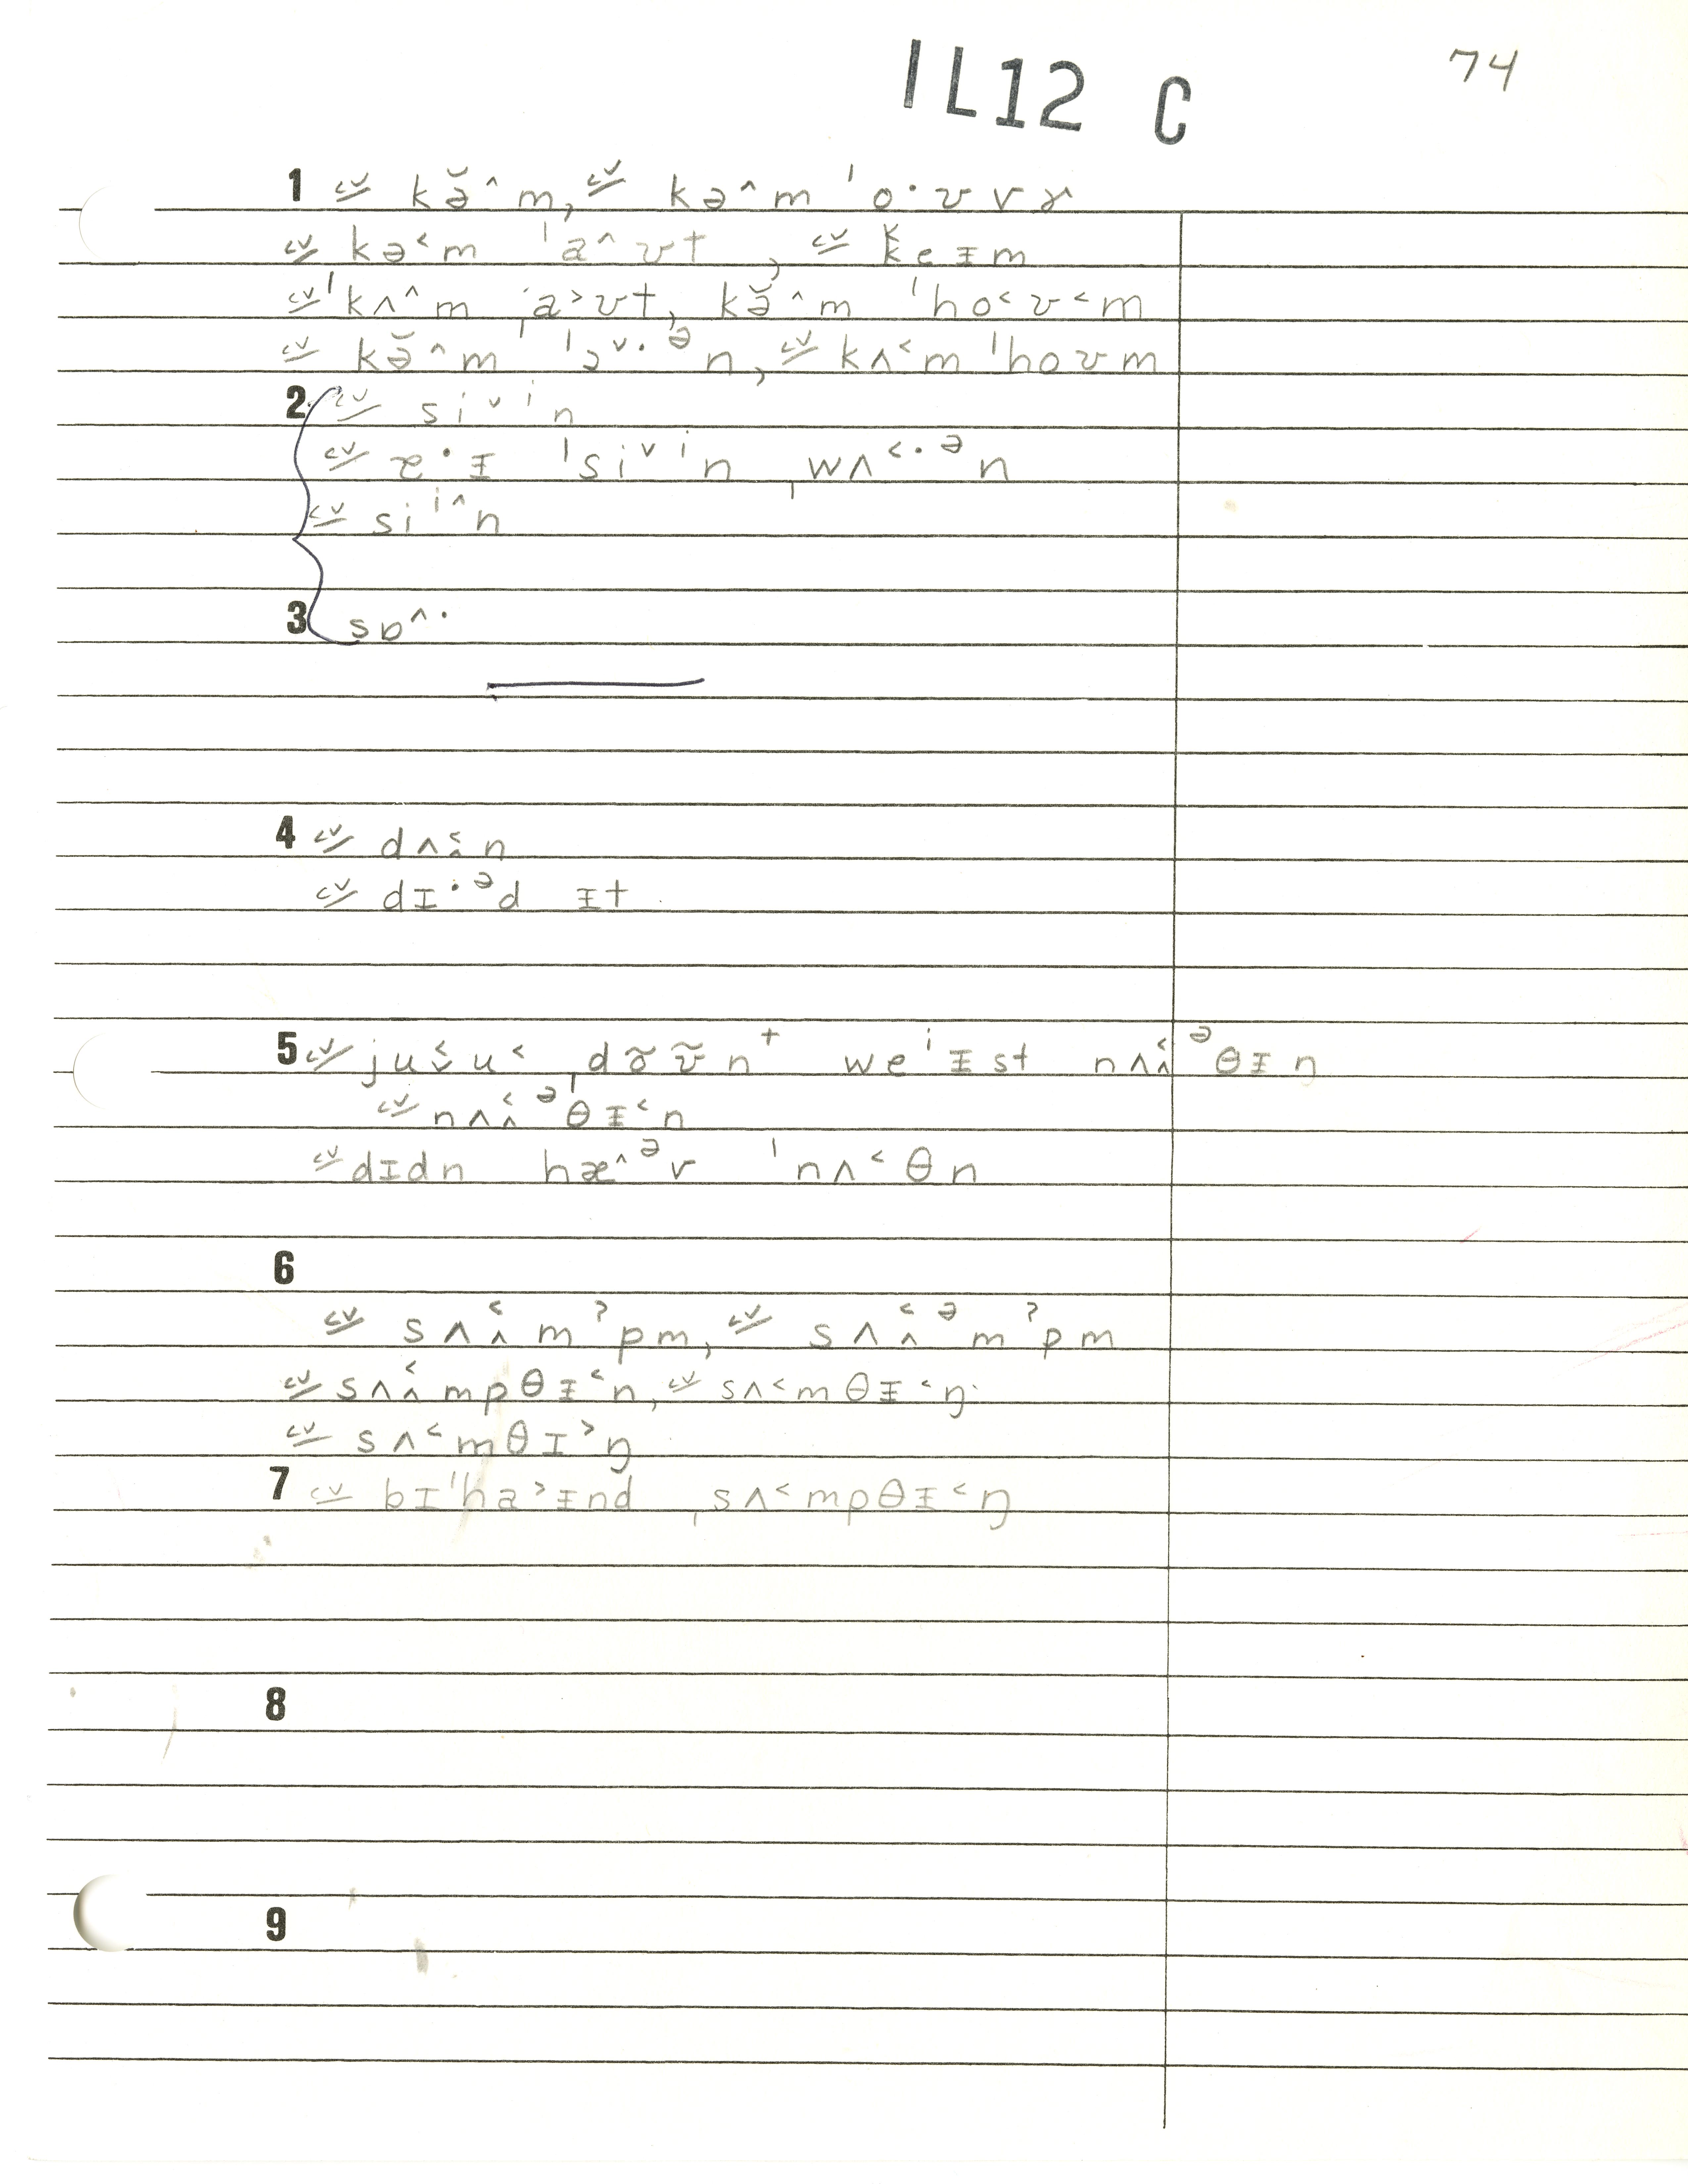 IL12 C
74
1 cv kə̆^m, cv kə^m ˈo·ʊvɤ
cv kə˂m ˈa^ʊt, cv keɪm
cv ˈkʌ^m ˌa˃ʊt, kə̆^m ˈho˂ʊ˂m
cv kə̆^m ˌ ˈɔˇ·ᵊn, cv kʌ˂m ˈhoʊm
2 cv siˇⁱn
cv ɪ ˈsiˇⁱn ˌwʌ˂·ᵊn
cv siⁱ^n
3 sɒ^·
4 cv dʌ˂n
cv dɪ·ᵊd ɪt
5 cv ju˂u˂ ˌdõʊ̃nᵗ weⁱɪst nʌʌ˂ᵊθɪŋ
cv nʌʌ˂ᵊθɪ˂n
cv dɪdn hæ^ᵊv ˈnʌ˂θn
6
cv sʌʌ˂mˀpm, cv sʌʌ˂ᵊmˀpm
cv sʌʌ˂mpθɪ˂n, cv sʌ˂mθɪ˂ŋ
cv sʌ˂mθɪ˃ŋ
7 cv bɪˈha˃ɪnd ˌsʌ˂mpθɪ˂ŋ
8
9